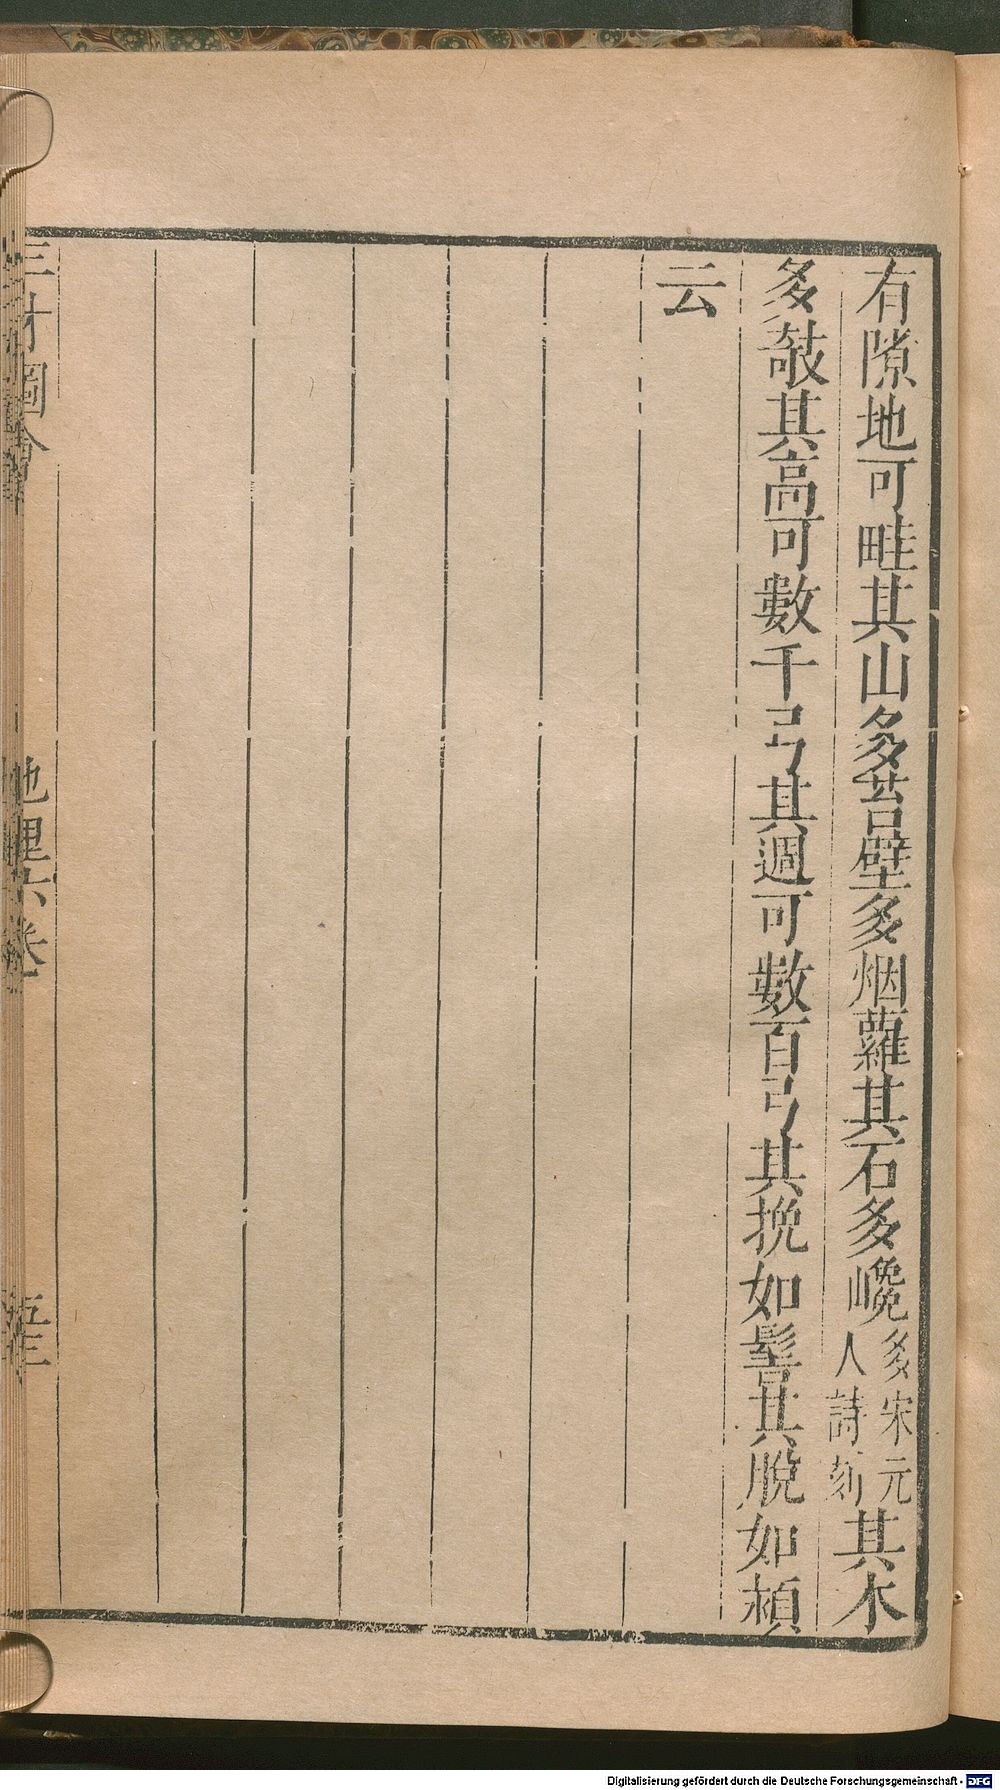 有隙地可畦其山多苔壁多烟蘿其石多巉多宋元人詩刻其木
多攲其高可數千弓其週可數百弓其挽如髻其脫如頮
云
三才圖會
地理六卷
至三
Digitalisierung gefördert durch die Deutsche Forschungsgemeinschaft - DFG